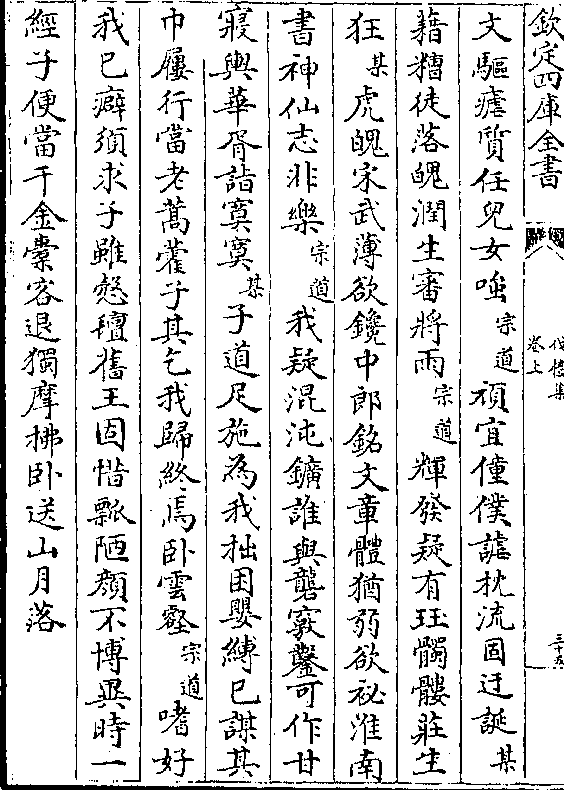 欽定四庫全書
卷上
三十五
文驅瘧質任兒女嗤宗道頑宜僮僕謔枕流固迂誕某
藉糟徒落魄潤生審將雨宗道輝發疑有玨髑髏莊生
狂某虎魄宋武薄欲鑱中郎銘文章體猶弱欲祕淮南
書神仙志非樂宗道我疑混沌鑛誰與礱竅鑿可作甘
寢與華胥詣寞寞某子道足施為我拙困嬰縛已謀其
巾屨行當老蒿藿子其乞我歸終焉卧雲壑宗道嗜好
我已癖須求子雖慤羶舊王固惜瓢陋顏不博異時一
經子便當千金橐客退獨摩拂卧送山月落